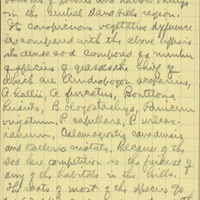 in the central sand hills region.
It comparison vegetative difference
as compared with the above types in
its dense sod composed of a number
of species of grasses the chief of
which are Andropogon scoparius,
A. hallii, A. furcatus, Bouteloua
hirsuta, B. oligostachya, Panicum
virgatum, P. capillare, P. wilcox-
ianum, Calamagrostis canadensis
and Koeleria cristata. Because of the
sod here competition is the fiercest of
any of the habitats in the hills.
The roots of most of the species go